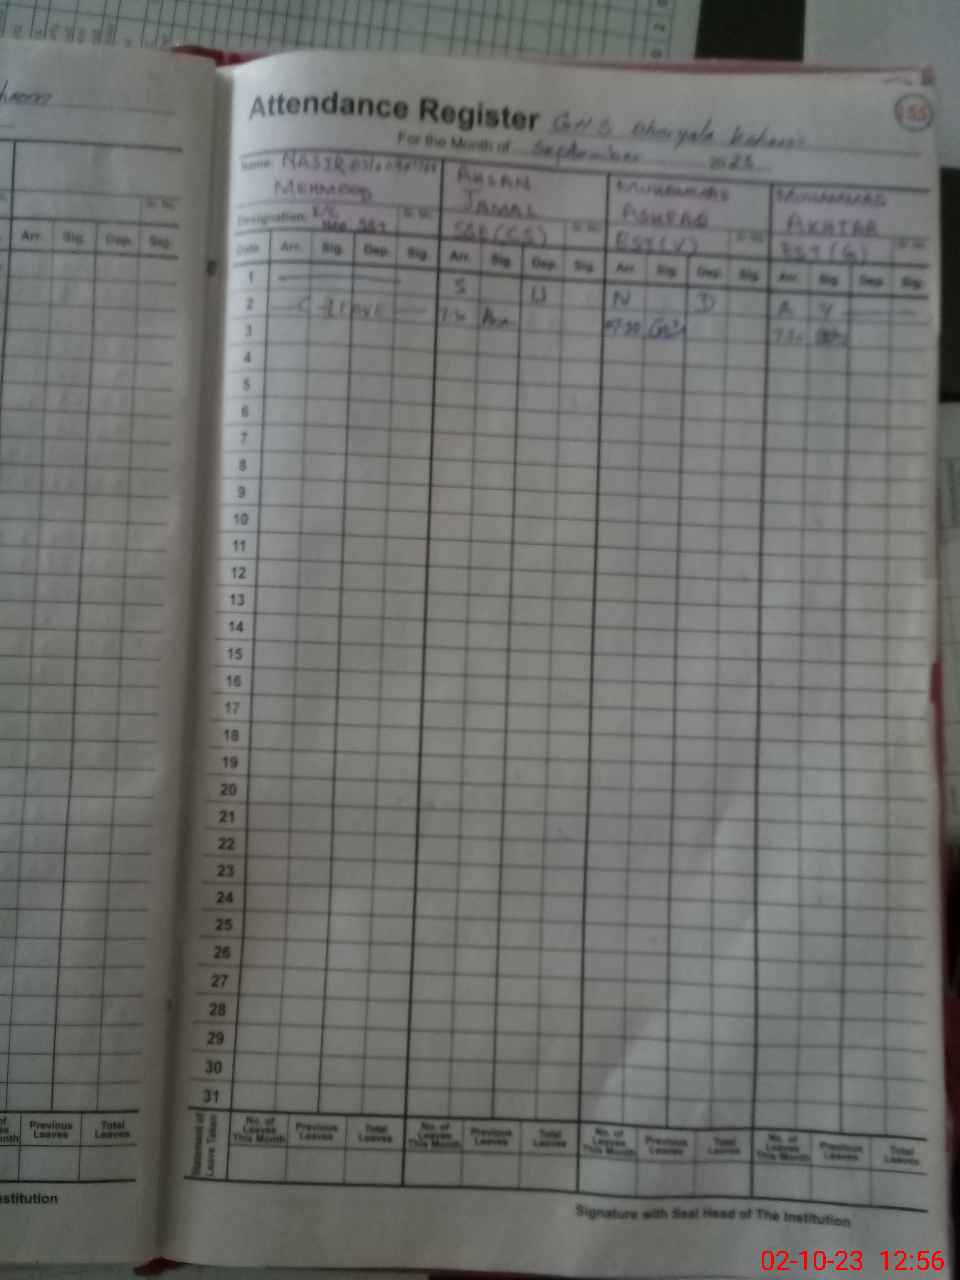 Attendance Register GHS
For the Month of September 2023
Name: NASIR AHSAN MUHAMMAD MUHAMMAD
MEHMOOD JAMAL ASHRAF AKHTAR
Designation: SST SSE (CS) EST (G)
Date Arr. Sig. Dep. Sig. Arr. Sig. Dep. Sig. Arr. Sig. Dep. Sig. Arr. Sig. Dep. Sig.
1 S U N D A Y
2 LEAVE 07:30
3
4
5
6
7
8
9
10
11
12
13
14
15
16
17
18
19
20
21
22
23
24
25
26
27
28
29
30
31
Statement of Leave Taken No. of Leaves This Month Previous Leaves Total Leaves No. of Leaves This Month Previous Leaves Total Leaves No. of Leaves This Month Previous Leaves Total Leaves No. of Leaves This Month Previous Leaves Total Leaves
Signature with Seal Head of The Institution
Arr. Sig. Dep. Sig.
Previous Leaves Total Leaves
02-10-23 12:56